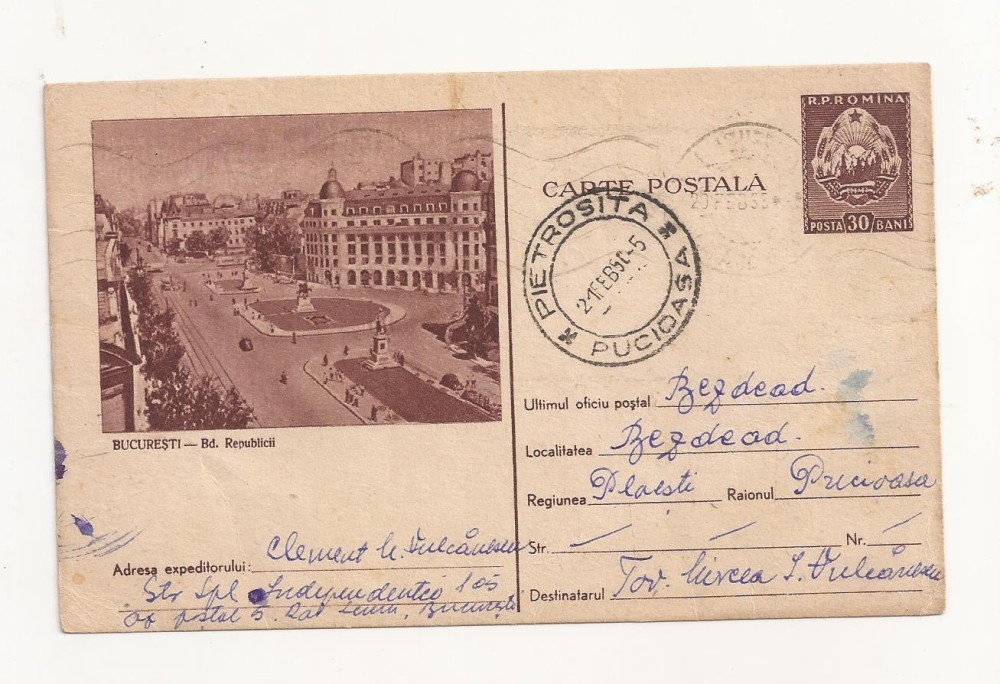 R.P.ROMINA
POSTA 30 BANI
CARTE POȘTALĂ
20 FEB 55
PIETROSITA
21 FEB 5
PUCIOASA
BUCUREȘTI — Bd. Republicii
Ultimul oficiu poștal Bezdead.
Localitatea Bezdead.
Regiunea Ploești Raionul Pucioasa
Str. — — Nr. —
Destinatarul Tov. Mircea I. Vulcănescu
Adresa expeditorului: Clement N. Vulcănescu
Str Spl. Independentei 105
of poștal 5. Lenin, București